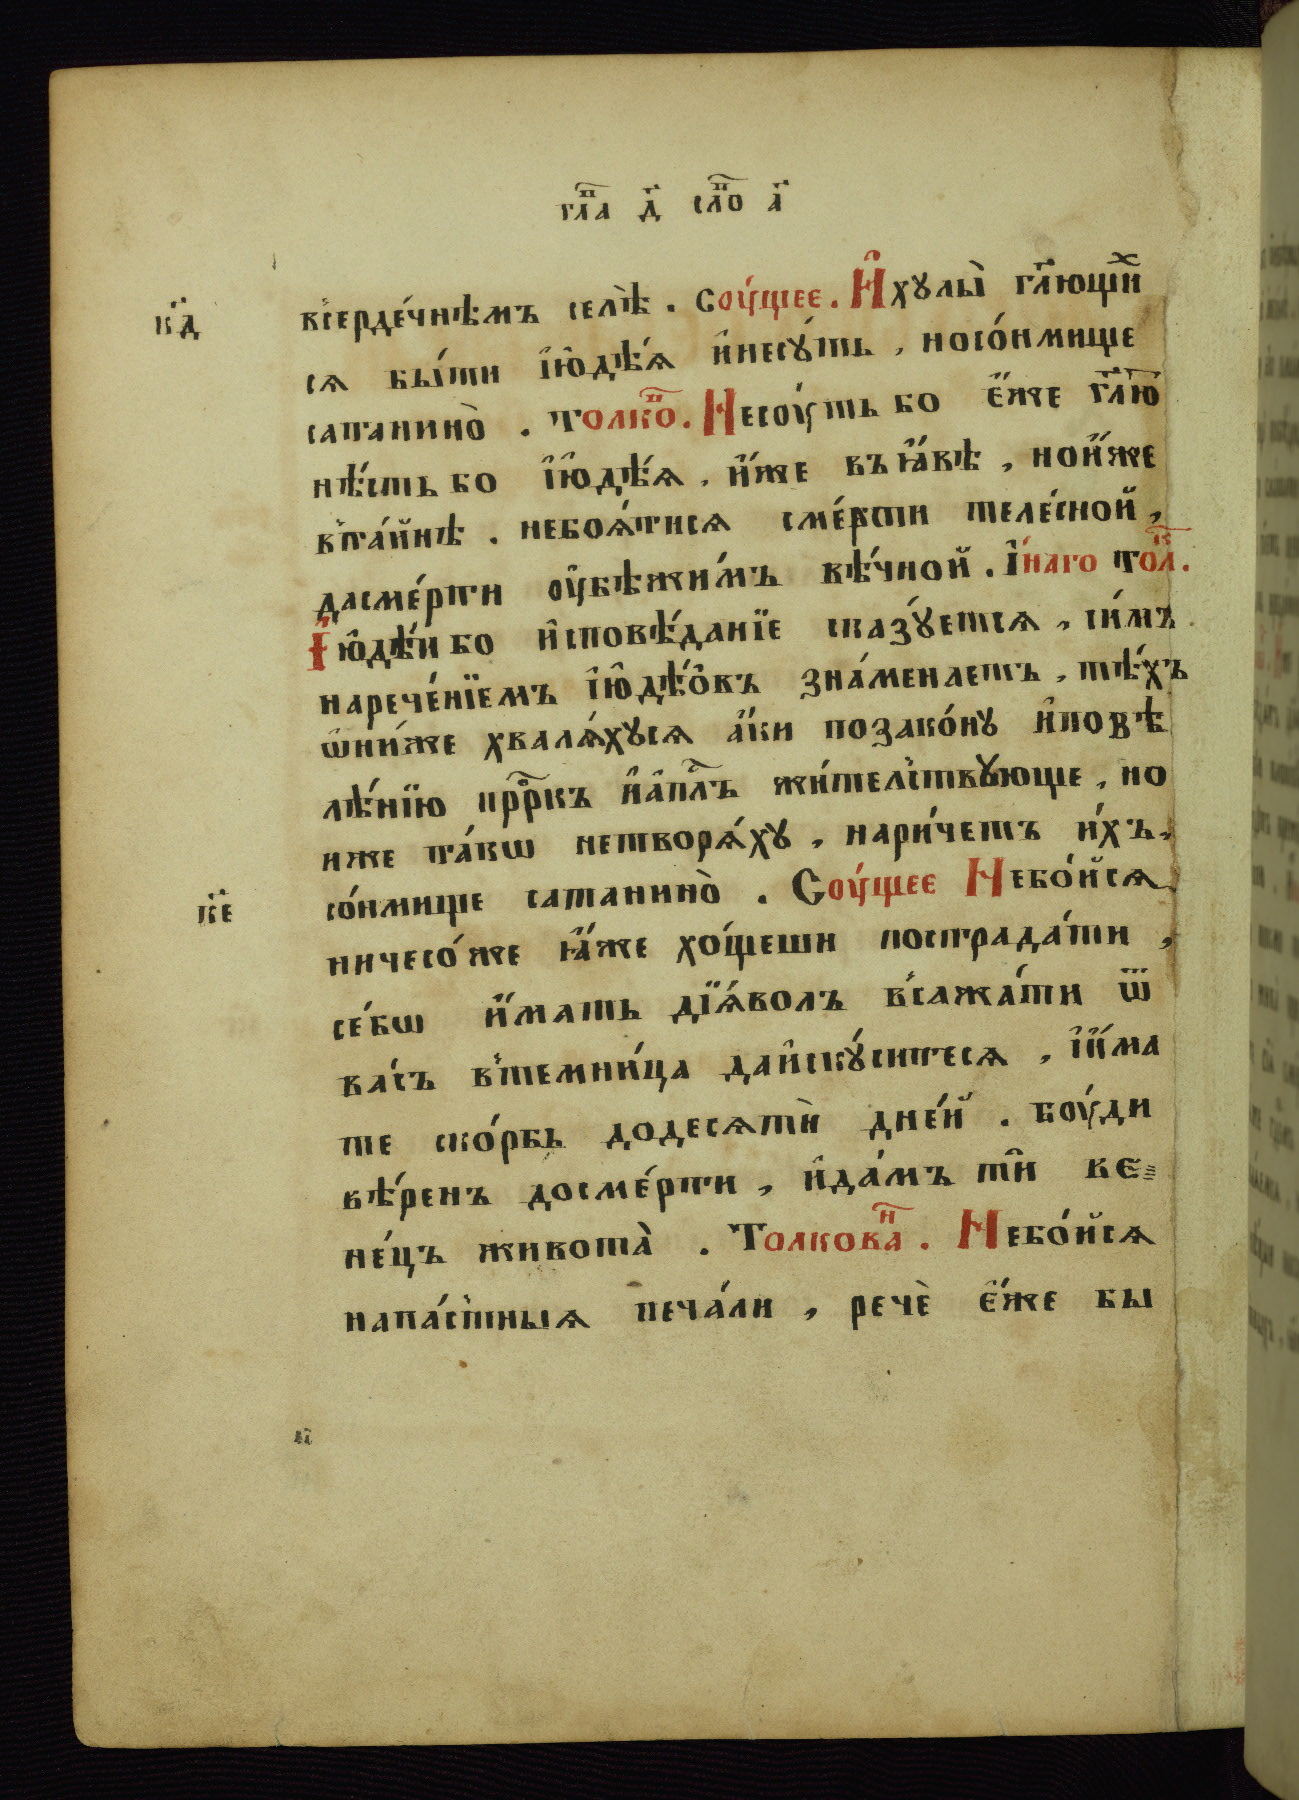 гл҃а д҃ сло҃ а҃
к҃д
всерде́чнѣмъ селѣ̀. Сꙋ́щее. И҆хꙋлы̀ гл҃ющи́хъ
ся бы́ти і҆ю҆дѣ́ѧ и҆несꙋ́ть, носо́нмище
сатанино̀. Толко҃в. Несоу́ть бо є҆́же гл҃ю
нѣ́сть бо і҆ю҆дѣ́ѧ, и҆́же въꙗ҆́вѣ, нои҆́же
вта́йнѣ. небоѧ́тисѧ сме́рсти теле́сной,
дасме́рти оу҆бѣжи́мъ вѣ́чной. І҆́наго то҃л.
І҆ю҆дѣ́и бо и҆сповѣ́данїе сказꙋ́етсѧ, си́мъ
нарече́нїемъ і҆ю҆дѣ́ѡвъ зна́менаетъ, тѣ́хъ
ѡ҆ни́же хвалѧ́хꙋсѧ а҆́ки позако́нꙋ и҆повѣ
лѣ́нїю прⷪ҇ркъ и҆а҆пⷭ҇лъ жи́тельствꙋюще, но
иже та́кѡ нетворѧ́хꙋ, нари́четъ и҆́хъ,
к҃е
со́нмище сатанино̀. Соу́щее Небо́йсѧ
ничесо́же ꙗ҆́же хо́щеши пострада́ти,
се́бѡ и҆́мать дїѧ́волъ всажа́ти ѿ
ва́съ втемни́ца даи҆скꙋ́ситесѧ, і҆и҆́ма
те ско́рбь додесѧтѝ дне́й. Боу́ди
вѣ́ренъ досме́рти, и҆да́мъ тѝ ве
не́цъ живота̀. Толкова҃н. Небо́йсѧ
напа́стныѧ печа́ли, речѐ є҆́же бы